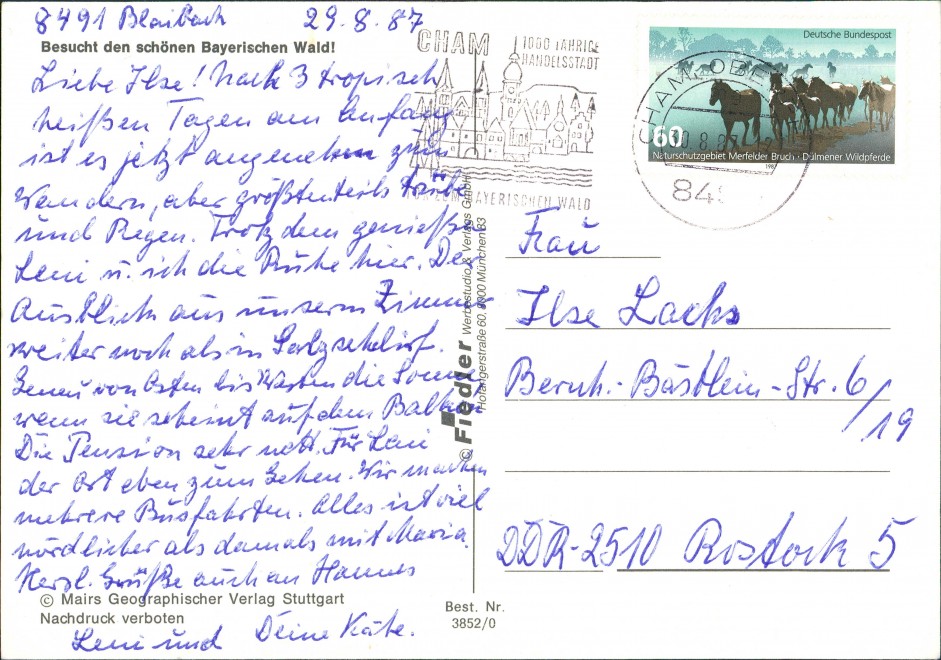 8491 Blaibach 29.8.87
Besucht den schönen Bayerischen Wald!
Liebe Ilse! Nach 3 tropisch
heißen Tagen am Anfang
ist es jetzt angenehm zum
Wandern, aber größtenteils trübe
und Regen. Trotzdem genießen
Leni u. ich die Ruhe hier. Der
Ausblick aus unserm Zimmer
weiter noch als in Salzschlirf.
Genau von Osten bis Westen die Sonne
wenn sie scheint auf dem Balkon
Die Pension sehr nett. Für Leni
der Ort eben zum Gehen. Wir machen
mehrere Busfahrten. Alles ist viel
nördlicher als damals mit Maria.
Herzl. Grüße auch an Hannes
© Mairs Geographischer Verlag Stuttgart
Nachdruck verboten
Leni und Deine Käte.
Best. Nr.
3852/0
© Fiedler Werbestudio & Verlags GmbH
Hofangerstraße 60, 8000 München 83
CHAM
1000 JÄHRIGE
HANDELSSTADT
BAYERISCHEN WALD
Deutsche Bundespost
60
Naturschutzgebiet Merfelder Bruch · Dülmener Wildpferde
CHAM, OBE
84
Frau
Ilse Lachs
Bernh.-Bästlein-Str. 6/19
DDR-2510 Rostock 5